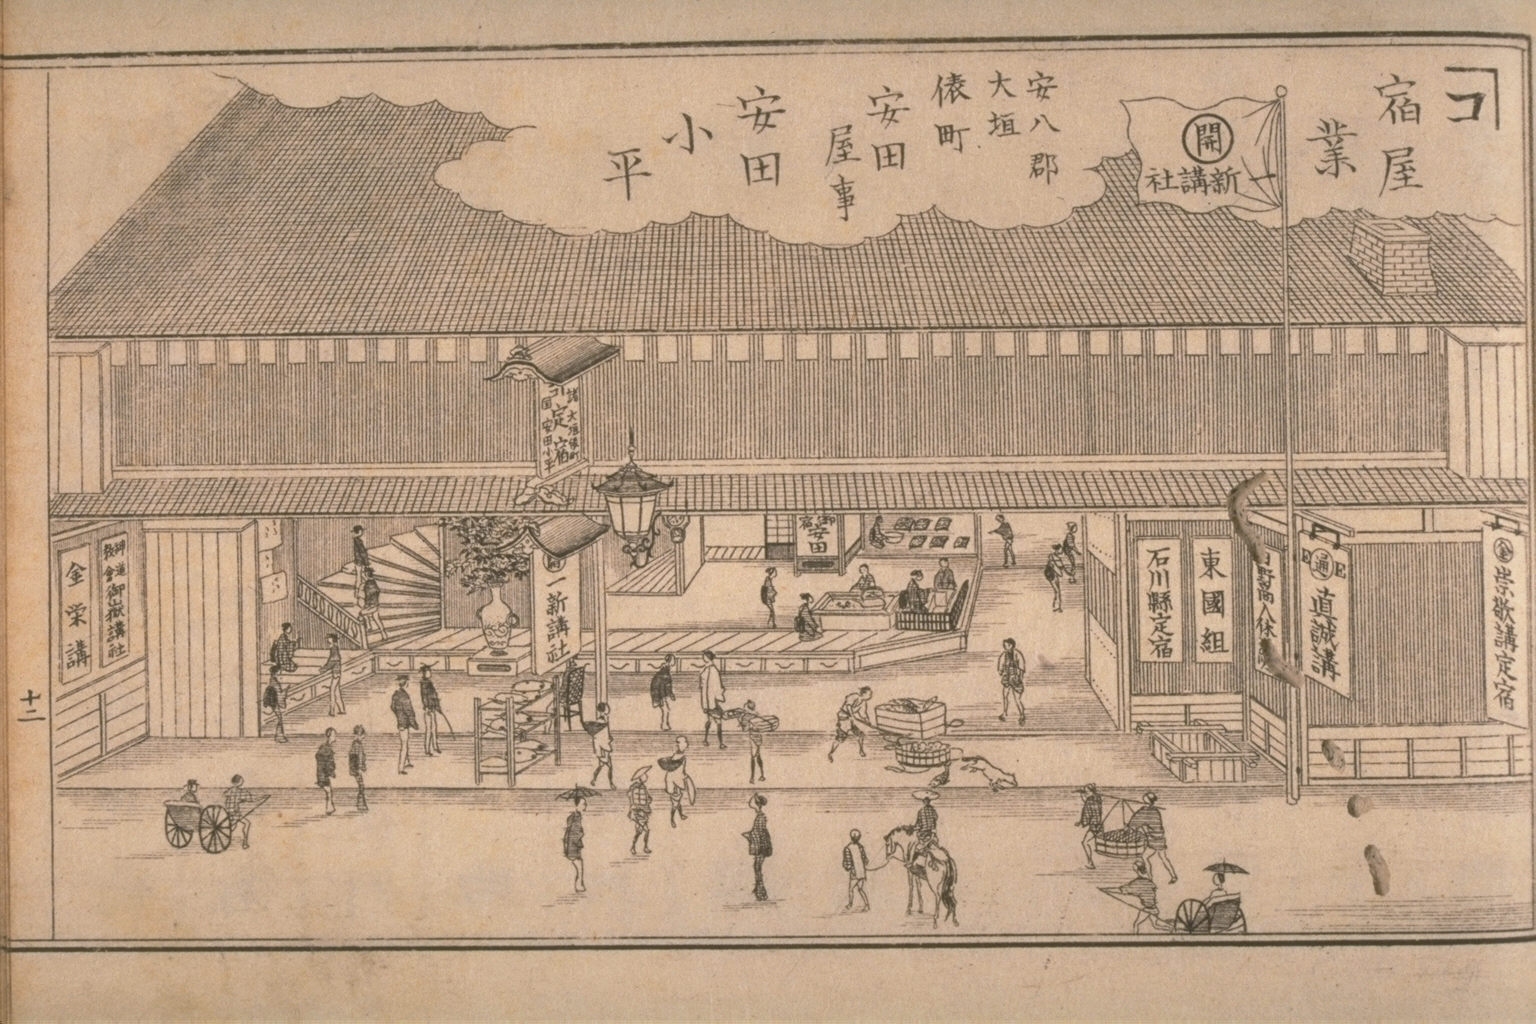 コ
宿屋
業
開
一新講社
安八郡
大垣
俵町
安田
屋事
安田
小
平
諸
大垣俵町
定宿
国
安田小平
一新講社
御宿
安田
御嶽講社
金栄講
東國組
石川縣定宿
通
直誠講
崇敬講定宿
十二